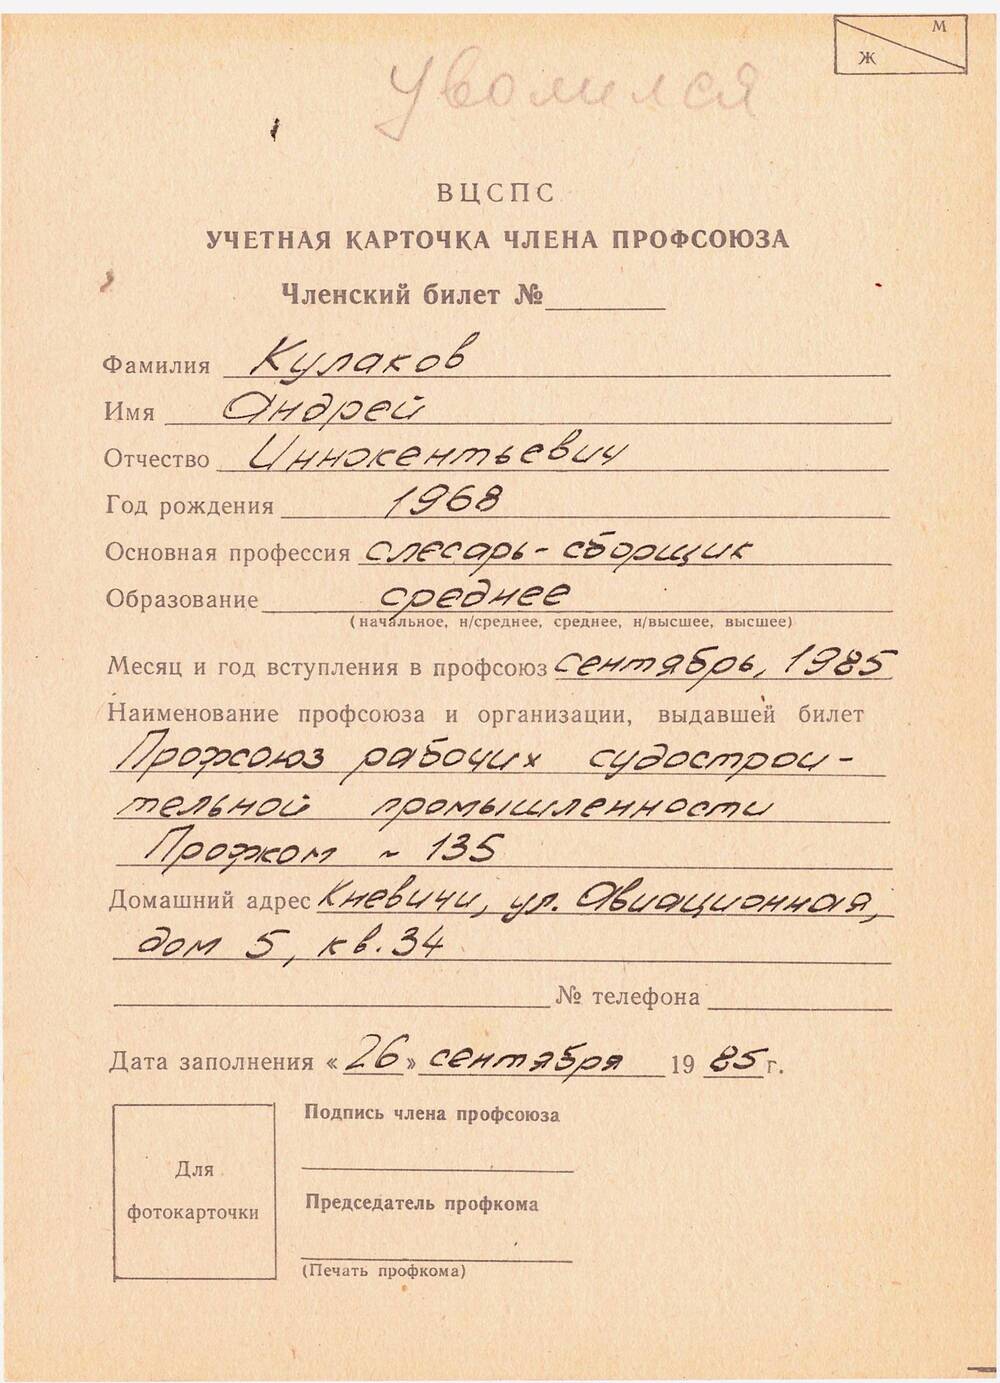 М
Ж
уволился
ВЦСПС
УЧЕТНАЯ КАРТОЧКА ЧЛЕНА ПРОФСОЮЗА
Членский билет №
Фамилия Кулаков
Имя Андрей
Отчество Иннокентьевич
Год рождения 1968
Основная профессия слесарь-сборщик
Образование среднее
(начальное, н/среднее, среднее, н/высшее, высшее)
Месяц и год вступления в профсоюз сентябрь, 1985
Наименование профсоюза и организации, выдавшей билет
Профсоюз рабочих судострои-
тельной промышленности
Профком ~ 135
Домашний адрес Кневичи, ул. Авиационная,
дом 5, кв. 34
№ телефона
Дата заполнения «26» сентября 1985 г.
Подпись члена профсоюза
Для
фотокарточки
Председатель профкома
(Печать профкома)